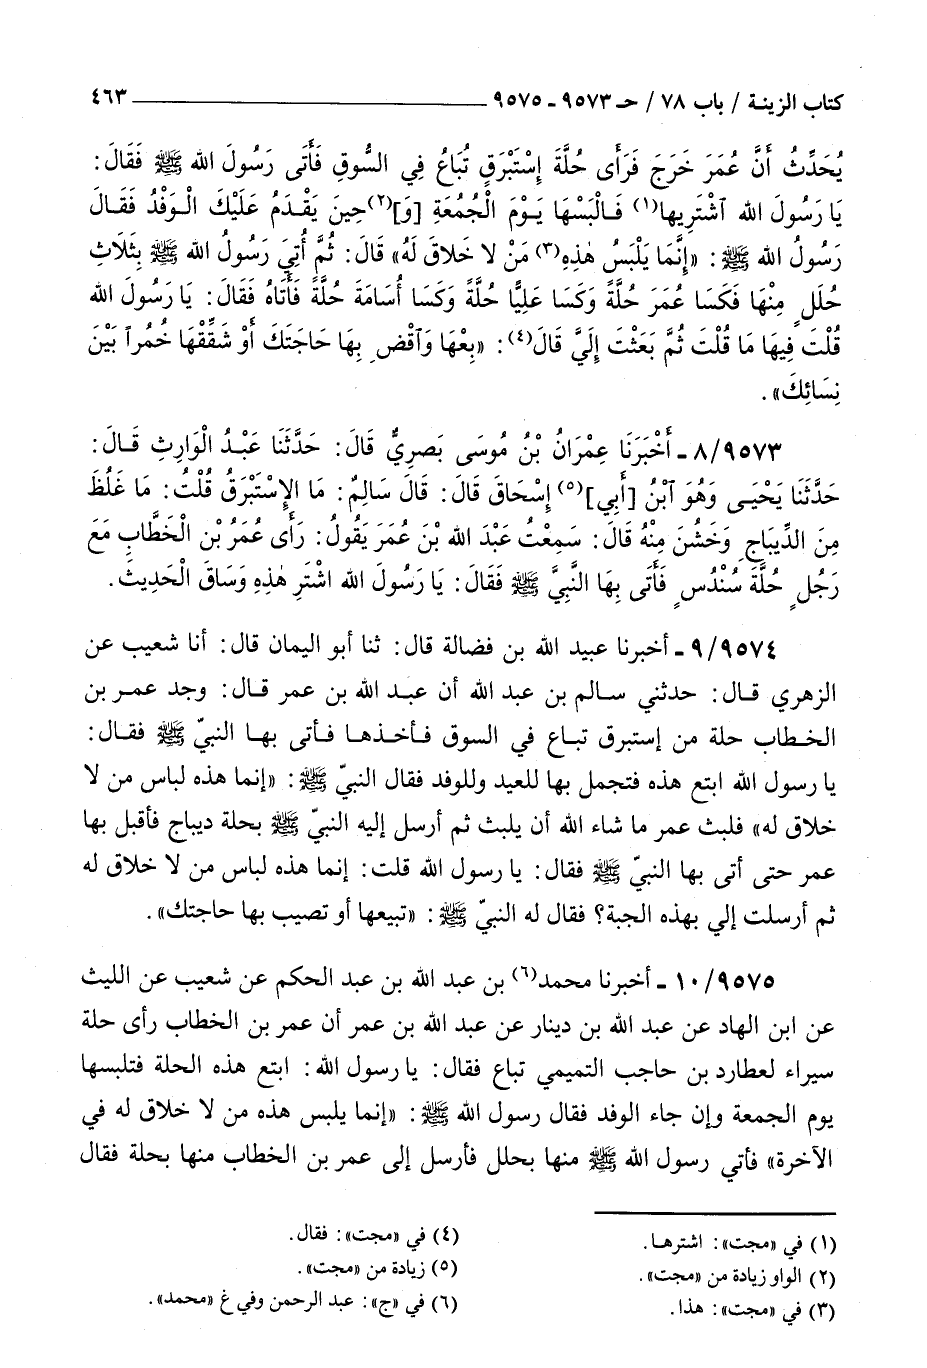 كتاب الزينة / باب ٧٨ / حـ ٩٥٧٣ ـ ٩٥٧٥ ٤٦٣
يُحَدِّثُ أَنَّ عُمَرَ خَرَجَ فَرَأَى حُلَّةَ إِسْتَبْرَقٍ تُبَاعُ فِي السُّوقِ فَأَتَى رَسُولَ الله ﷺ فَقَالَ:
يَا رَسُولَ الله ٱشْتَرِيها(١) فَالْبَسْهَا يَوْمَ الْجُمُعَةِ [وَ](٢)حِينَ يَقْدَمُ عَلَيْكَ الْوَفْدُ فَقَالَ
رَسُولُ الله ﷺ: «إِنَّمَا يَلْبَسُ هٰذِهِ(٣) مَنْ لا خَلاقَ لَهُ» قَالَ: ثُمَّ أُتِيَ رَسُولُ الله ﷺ بِثَلاثِ
حُلَلٍ مِنْهَا فَكَسَا عُمَرَ حُلَّةً وَكَسَا عَلِيًّا حُلَّةً وَكَسَا أُسَامَةَ حُلَّةً فَأَتَاهُ فَقَالَ: يَا رَسُولَ الله
قُلْتَ فِيهَا مَا قُلْتَ ثُمَّ بَعَثْتَ إِلَيَّ قَالَ(٤): «بِعْهَا وَٱقْضِ بِهَا حَاجَتَكَ أَوْ شَقِّقْهَا خُمُراً بَيْنَ
نِسَائِكَ».
٨/٩٥٧٣ ـ أَخْبَرَنَا عِمْرَانُ بْنُ مُوسَى بَصرِيٌّ قَالَ: حَدَّثَنَا عَبْدُ الْوَارِثِ قَالَ:
حَدَّثَنَا يَحْيَى وَهُوَ ٱبْنُ [أَبِي](٥) إِسْحَاقَ قَالَ: قَالَ سَالِمٌ: مَا الإِسْتَبْرَقُ قُلْتُ: مَا غَلُظَ
مِنَ الدِّيبَاجِ وَخَشُنَ مِنْهُ قَالَ: سَمِعْتُ عَبْدَ الله بْنَ عُمَرَ يَقُولُ: رَأَى عُمَرُ بْنِ الْخَطَّابِ مَعَ
رَجُلٍ حُلَّةَ سُنْدُسٍ فَأَتَى بِهَا النَّبِيَّ ﷺ فَقَالَ: يَا رَسُولَ الله اشْتَرِ هٰذِهِ وَسَاقَ الْحَدِيثَ.
٩/٩٥٧٤ ـ أخبرنا عبيد الله بن فضالة قال: ثنا أبو اليمان قال: أنا شعيب عن
الزهري قال: حدثني سالم بن عبد الله أن عبد الله بن عمر قال: وجد عمر بن
الخطاب حلة من إستبرق تباع في السوق فأخذها فأتى بها النبيّ ﷺ فقال:
يا رسول الله ابتع هذه فتجمل بها للعيد وللوفد فقال النبيّ ﷺ: «إنما هذه لباس من لا
خلاق له» فلبث عمر ما شاء الله أن يلبث ثم أرسل إليه النبيّ ﷺ بحلة ديباج فأقبل بها
عمر حتى أتى بها النبيّ ﷺ فقال: يا رسول الله قلت: إنما هذه لباس من لا خلاق له
ثم أرسلت إلي بهذه الجبة؟ فقال له النبيّ ﷺ: «تبيعها أو تصيب بها حاجتك».
١٠/٩٥٧٥ ـ أخبرنا محمد(٦) بن عبد الله بن عبد الحكم عن شعيب عن الليث
عن ابن الهاد عن عبد الله بن دينار عن عبد الله بن عمر أن عمر بن الخطاب رأى حلة
سيراء لعطارد بن حاجب التميمي تباع فقال: يا رسول الله: ابتع هذه الحلة فتلبسها
يوم الجمعة وإن جاء الوفد فقال رسول الله ﷺ: «إنما يلبس هذه من لا خلاق له في
الآخرة» فأتي رسول الله ﷺ منها بحلل فأرسل إلى عمر بن الخطاب منها بحلة فقال
(١) في «مجت»: اشترها.
(٢) الواو زيادة من «مجت».
(٣) في «مجت»: هذا.
(٤) في «مجت»: فقال.
(٥) زيادة من «مجت».
(٦) في «ج»: عبد الرحمن وفي غ «محمد».